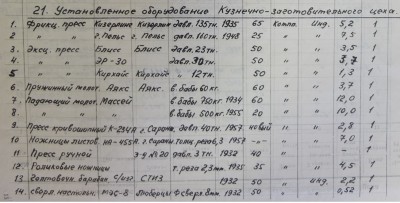 21. Установленное оборудование Кузнечно-заготовительного цеха
1 Фрикц. пресс давл. 135тн. 1935 65 Комп. Инд. 5,2 1
2 " " г. Пельс г. Пельс давл. 160тн. 1948 25 " " 7,5 1
3 Эксц. пресс Блисс Блисс давл. 23тн. 50 " " 3,5 1
4 " " ЭР-30 давл. 30тн 50 " " 3,7 1
5 " " Кирхайс Кирхайс " 12тн. 50 " " 1,3 1
6 Пружинный молот. Аякс Аякс в. бабы 60кг. " " 3,7 1
7 Падающий молот. Массей в бабы 750кг 1934 60 " " 12,0 1
8 " " " в бабы 500кг 1955 20 " " 10,0 1
9 Пресс кривошипный К-234А г. Саранск давл. 40тн. 1957 новый " " 2,8 1
10 Ножницы листов на-455А г. толщ. резов. 3 1957 " " 7,0 1
11 Пресс ручной з-у №20 давл. 3тн. 1932 40 " " 1
12 Роликовые ножницы т. реза 2,3мм. 1935 35 " " 4,5 1
13 СТИЗ 1932 50 " Инд 2,2 1
14 настольн. Люберцы 1932 50 " " 0,52 1